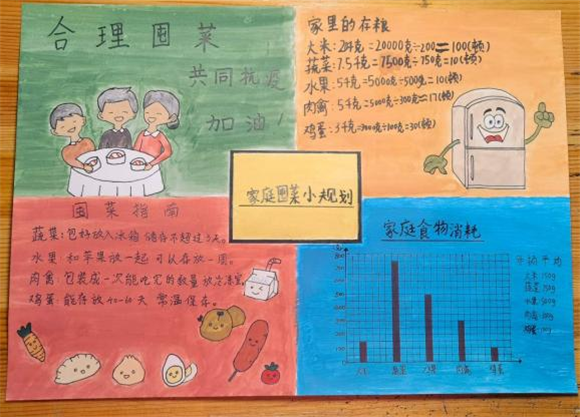 合理囤菜
共同抗疫
加油！
家里的存粮
大米：20千克=20000克÷200=100(顿)
蔬菜：7.5千克=7500克÷750克=10(顿)
水果：5千克=5000克÷500克=10(顿)
肉禽：5千克=5000克÷300克≈17(顿)
鸡蛋：3千克=3000克÷100克=30(顿)
家庭囤菜小规划
囤菜指南
蔬菜：包好放入冰箱储存不超过3天。
水果：和苹果放一起可以存放一周。
肉禽：包装成一次能吃完的数量放冷冻室。
鸡蛋：能存放40-60天 常温保存。
家庭食物消耗
大米 蔬菜 水果 肉禽 鸡蛋